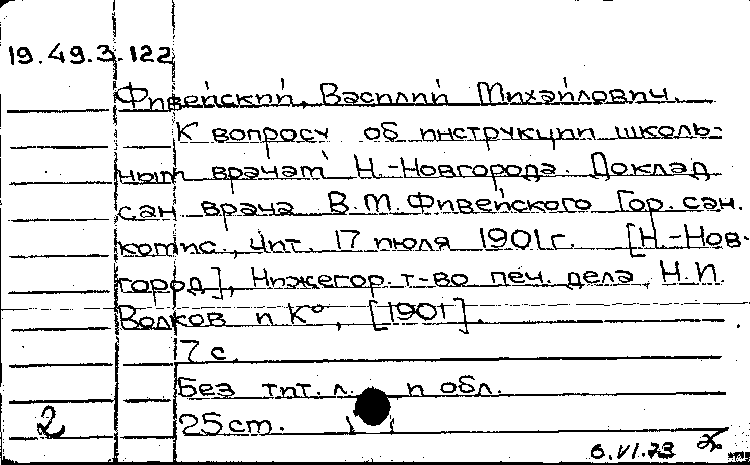 19.49.3.122
Фивейский, Василий Михайлович.
К вопросу об инструкции школь-
ным врачам Н.-Новгорода. Доклад
сан. врача В.М.Фивейского Гор. сан.
комис., чит. 17 июля 1901 г. [Н.-Нов-
город], Нижегор. т-во печ. дела, Н.И.
Волков и К°, [1901].
7 с.
Без тит. л. и обл.
2 25 ст.
6.VI.73